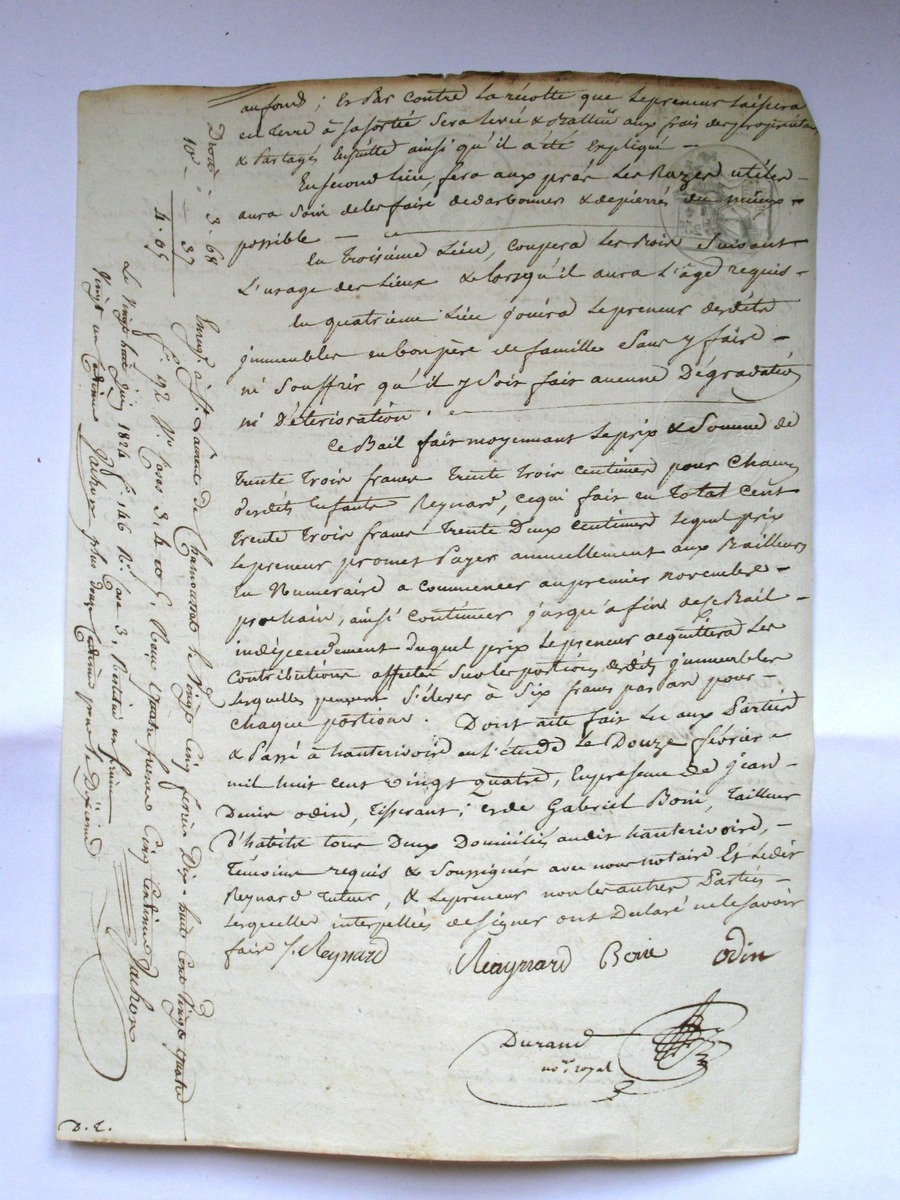 au fond ; Et Par contre La récolte que Le preneur Laissera
en terre à sa sortie sera Levée & Battue aux frais des propriétaires
& Partagée Ensuitte ainsi qu'il a été Expliqué —
En second Lieu, fera aux prés Les Razes utiles —
aura soin de les faire dedarbonner & depierrés du mieux —
possible —
En Troisieme Lieu, coupera Les Bois Suivant
L'usage des Lieux & Lorsqu'il aura L'âge requis —
En quatrieme Lieu jouira Le preneur desdits
jmmeubles en bon père de famille Sans y faire —
ni Souffrir qu'il y Soit fait aucune Dégradation
ni Détérioration . —
Ce Bail fait moyennant Le prix & Somme de
Trente Trois francs Trente Trois centimes pour chacun
desdits Enfants Reynard, ce qui fait en Total Cent
Trente Trois francs Trente Deux centimes Lequel prix
Le preneur promet Payer annuellement aux Bailleurs
En Numeraire a commencer au premier novembre —
prochain, ainsi continuer jusqu'a fin de ce Bail —
indépendemment duquel prix Le preneur acquittera Les
Contributions affectées Sur Les portions desdits jmmeubles
Lesquelles peuvent S'élever à Six francs par an pour —
chaque portion . Dont acte fait Lu aux Parties
& Passé à hauterivoire en L'étude Le Douze février —
mil huit cent vingt quatre, En presence de jean
Denis odin, Tisserant ; et de Gabriel Boin, Tailleur
D'habits tous Deux Domiciliés audit hauterivoire, —
Témoins requis & Soussignés avec nous notaire Et Ledit
Reynard Tuteur, & Le preneur non Les autres Parties —
Lesquelles interpellées de signer ont Declaré ne le savoir
faire /. Reynard Reaynard Boin odin
Durand
no.re royal
Droit : 3. 68
10e — 37
4. 05
Enregé à St Laurent de Chamousset le Vingt Cinq fevrier Dix-huit Cent Vingt quatre
f. 92 Vo Cases 3. 4 et 5. Reçu quatre francs Cinq Centimes
Le Vingt huit juin 1824 f. 146 Ro Case 3.
Vingt un Centimes plus Deux Centimes pour le Dixieme
D. L.